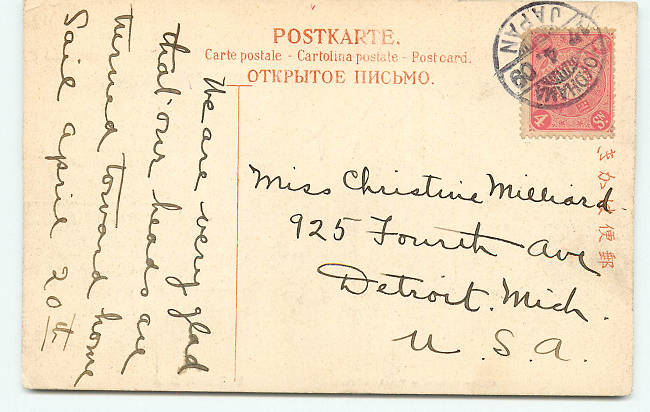 POSTKARTE.
Carte postale - Cartolina postale - Postcard.
ОТКРЫТОЕ ПИСЬМО.
We are very glad
that our heads are
turned toward home
Sail april 20th
Miss Christine Milliard
925 Fourth Ave
Detroit. Mich.
U. S. A.
YOKOHAMA
JAPAN
4 Sn.
便郵